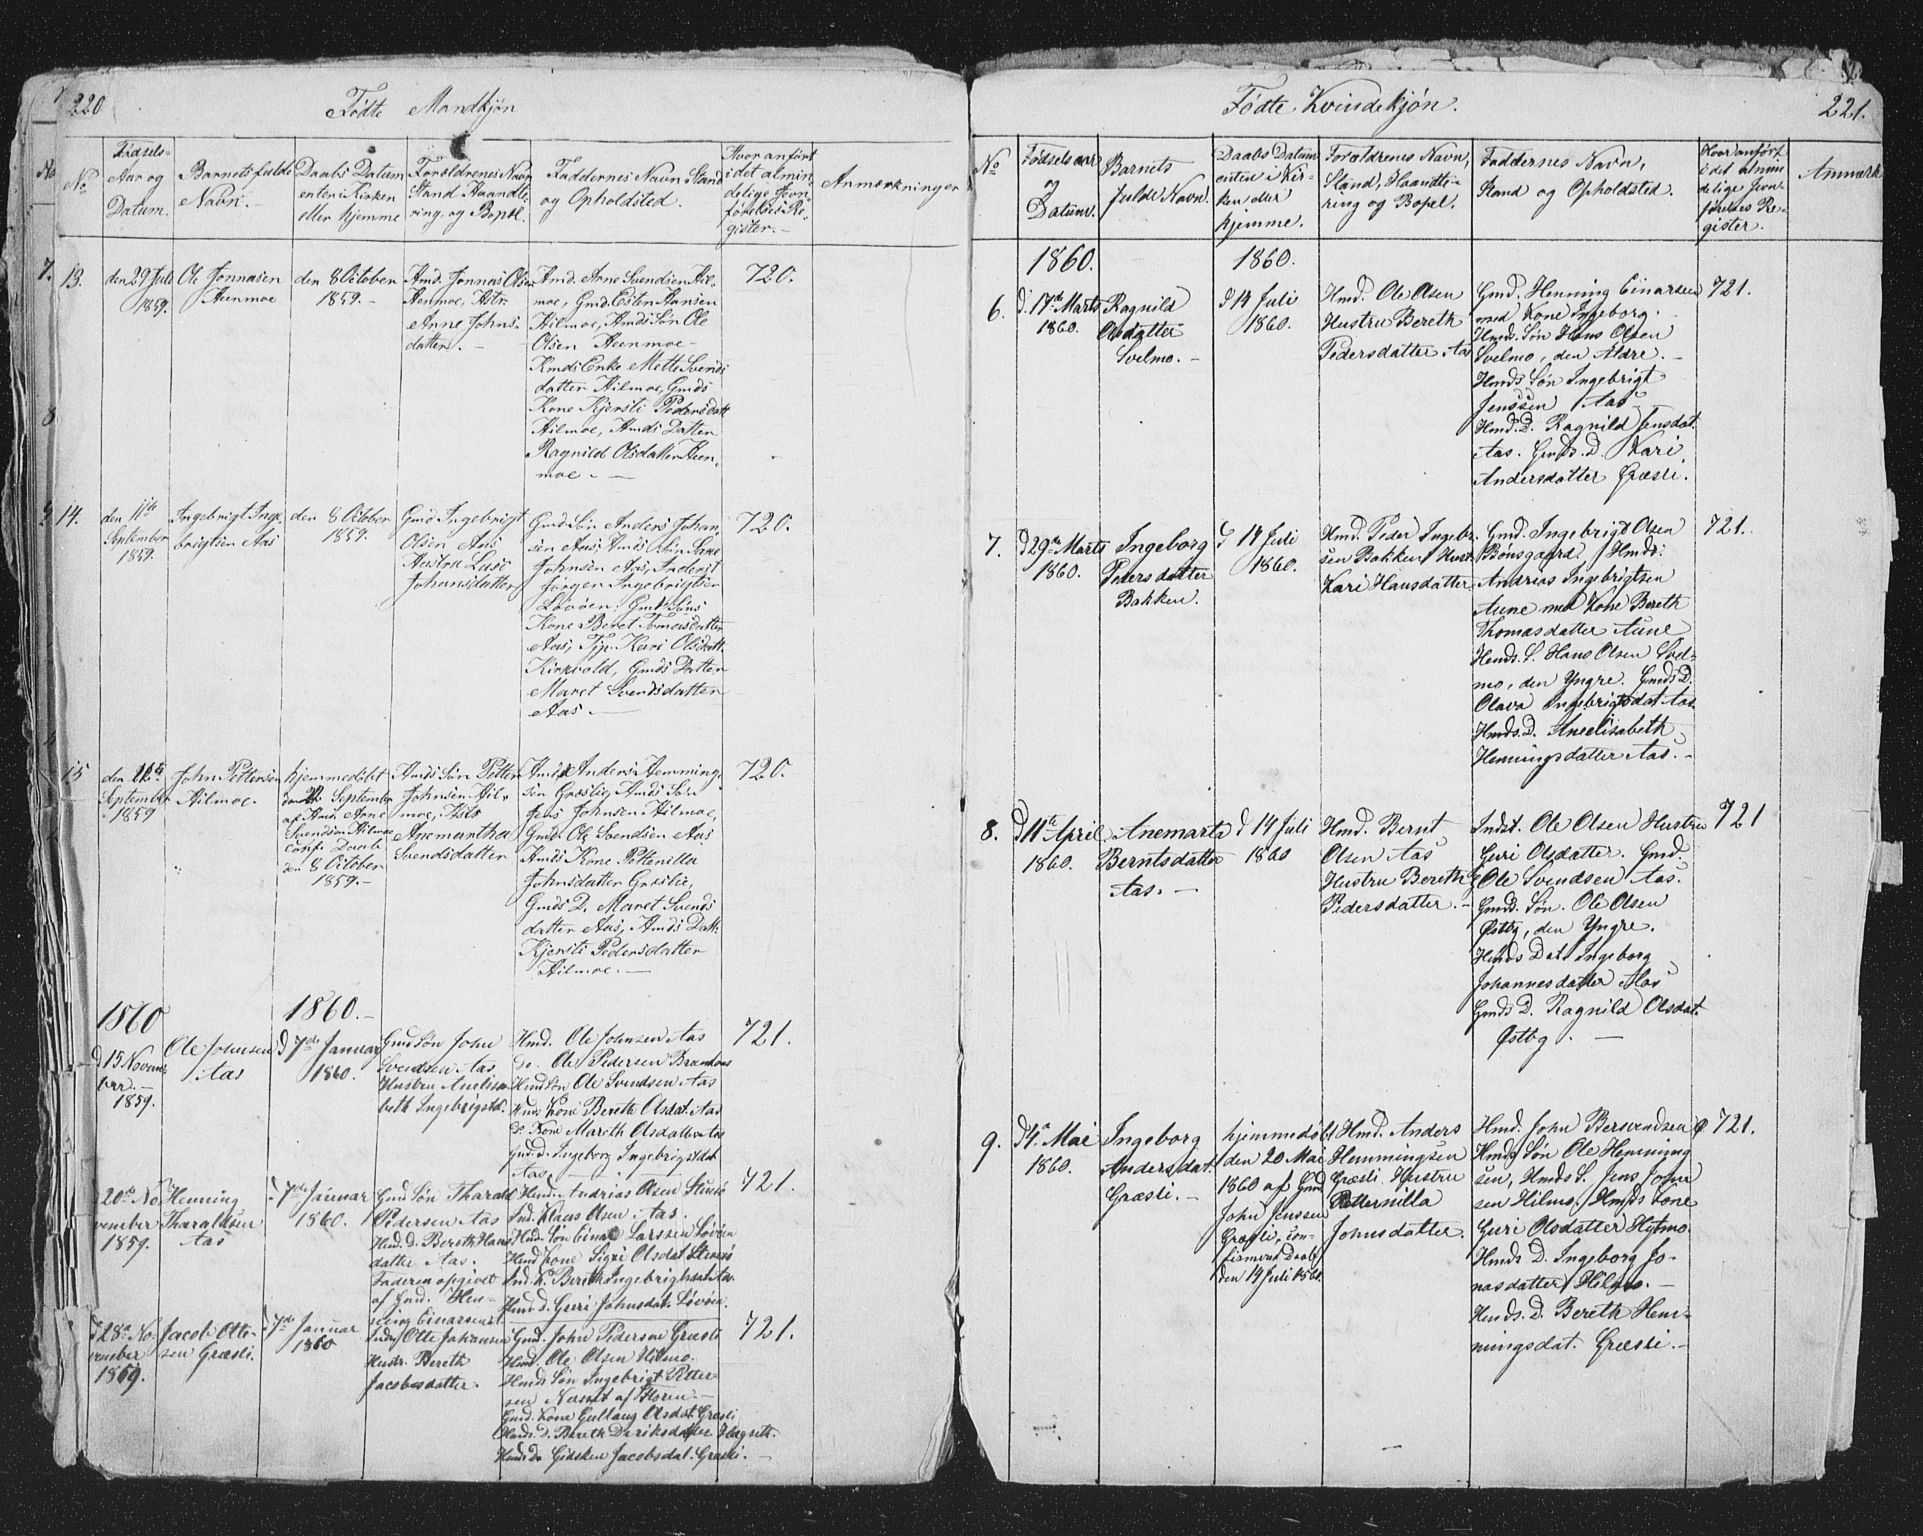 220
Fødte Mandkjøn
No.
Fødsels-
Aar og
Datum.
Barnets fulde
Navn.
Daabs Datum
enten i Kirken
eller hjemme
Forældrenes Navn
Stand Haandte-
ring, og Bopæl.
Faddernes Navn Stand
og Opholdsted.
Hvor anført
i det almin
delige Jevn
førelses Re-
gister.
Anmærkninger
13.
den 29 Juli
1859.
Ole Jonnasen
Heenmoe
den 8 October
1859.
Hmd. Jonnas Olsen
Heenmoe, Hstr.
Anne Johns-
datter.
Hmd. Arne Svendsen Hil-
moe, Gmd. Esten Hansen
Hilmoe, Hmds Søn Ole
Olsen Heenmoe
Kmds Enke Mette Svends
datter Hilmoe, Gmds
Kone Kjersti Pedersdatt
Hilmoe, Hmds Datter
Ragnild Olsdatter Heen-
moe.
720.
14.
den 11te
September
1859.
Ingebrigt Inge
brigtsen Aas
den 8 October
1859.
Gmd Ingebrigt
Olsen Aas
Hustru Lase
Johansdatter
Gmds Søn Anders Johan
sen Aas, Hmds Søn
Johnsen Aas,
Jørgen Ingebrigtsen
Løvøen, Gmds Søns
Kone Beret Tomasdatter
Aas, Tjp. Kari Olsdatt.
Kirkvold, Gmds Datter
Maret Svendsdatter
Aas.
720.
15
den
September
1859
John Pettersen
Hilmoe.
hjemmedøbt
den 22 September
af Hmd. Arne
Svendsen Hilmoe
conf. Daab
den 8 October
1859.
Hmds Søn Petter
Johnsen Hil-
moe, Hstr
Anemartha
Svendsdatter
Hmd Anders Hemming-
sen Græslie, Hmds Søn
Jens Johnsen Hilmoe,
Gmd. Ole Svendsen Aas
Hmds Kone Petternilla
Johnsdatter Græslie
Gmds D. Maret Svends
datter Aas, Hmds Datt.
Kjersti Pedersdatter
Hilmoe.
720.
1860
1860.
d 15 Novem-
ber
1859.
Ole Johnsen
Aas
d 7de Januar
1860.
Gmd Søn John
Svendsen Aas
Hustru Anelisa-
beth Ingebrigtsd.
Hmd. Ole Johnsen Aas
do. Ole Pedersen
Hmd Søn Ole Svendsen Aas
Hmd. Kone Bereth Olsdat. Aas
do. Kone Mareth Olsdatter Aas
Gmd. d. Ingeborg Ingebrigtsdat
Aas
721.
20de No-
vember
1859.
Henning
Tharaldsen
Aas
7de Januar
1860.
Gmd Søn Tharald
Pedersen Aas
Hmd. d. Bereth Hans
datter Aas.
Faderen opgivet
af Gmd. Hen-
ning Einarsen
Hmd. Andrias Olsen Stuesø
Ind. Klaus Olsen Aas.
Hmd. Søn Einar Larssen Løvøen
Hmd Kone Sigri Olsdat Stuesø
Ind. K. Bereth Ingebrightsdt Aas.
Hmd d. Guri Johnsdat. Løvøen.
721.
d 28de No-
vember
1859.
Jacob Otte-
sen Græsli.
7de Januar
1860
Inds Otte Johansen
Hustr. Bereth
Jacobsdatter.
Gmd. John Pedersen Græsli
Hmd. Ole Olsen Hilmo.
Hmds Søn Ingebrigt Petter-
sen Næsset af Støren.
Gmd. Kone Gullaug Olsdat. Græsli
Hmds. D. Bereth
Hmds D. Gidsken Jacobsdat. Græsli.
721.
Fødte Kvindekjøn.
221.
No
Fødselsaar
og
Datum.
Barnets
fulde Navn.
Daabs Datum
enten i Kir-
ken eller
hjemme.
Forældrenes Navn,
Stand, Haandte-
ring og Bopæl.
Faddernes Navn,
Stand og Opholdsted.
Hvor anført
i det almin
delige Jevn-
førelses Re-
gister.
Anmærk
1860.
1860.
6.
d. 17de Marts
1860.
Ragnild
Olsdatter
Svelmo.
d 14 Juli
1860.
Hmd. Ole Olsen
Hustru Bereth
Pedersdatter Aas
Gmd. Henning Einarsen
med Kone Ingeborg.
Hmds. Søn Hans Olsen
Svelmo, den Ældre.
Hmds Søn Ingebrigt
Jenssen Aas
Hmd. D. Ragnild Jensdat.
Aas. Gmds. D. Kari
Andersdatter Græsli.
721.
7.
d 29de Marts
1860.
Ingeborg
Pedersdatter
Bakken.
d 14 Juli
1860.
Hmd. Peder Ingebr.
sen Bakken Hust.
Kari Hansdatter
Gmd. Ingebrigt Olsen
Bønsgaard. Hmds.
Andrias Ingebrigtsen
Aune med Kone Bereth
Thomasdatter Aune
Hmds. S. Hans Olsen Svel-
mo, den Yngre. Gmds D.
Olava Ingebrigtsdat Aas.
Hmds. D. Anelisabeth
Henningsdatter Aas.
721.
8.
d 11te April
1860.
Anemarta
Berntsdatter
Aas.
d 14 Juli
1860
Hmd. Bernt
Olsen Aas
Hustru Bereth
Pedersdatter.
Indst. Ole Olsen Hustru
Guri Olsdatter. Gmd.
Ole Svendsen Aas.
Gmds. Søn. Ole Olsen
Østby, den Yngre.
Hmds Dat Ingeborg
Johannesdatter Aas
Gmds D. Ragnild Olsdat.
Østby.
721
9.
d 4de Mai
1860.
Ingeborg
Andersdat.
Græsli.
hjemmedøbt
den 20 Mai
1860 af Gmd
John Jenssen
Græsli, con-
firmeret Daab
den 14 Juli 1860.
Hmd. Anders
Hemmingsen
Græsli Hustru
Petternilla
Johnsdatter.
Hmd. John Bersvendsen
Hmds Søn Ole Hemming
sen, Hmds S. Jens John
sen Hilmo. Hmds Kone
Guri Olsdatter Hytmo
Hmds D. Ingeborg Jo-
nasdatter Hilmo.
Hmds. D. Bereth Hem-
mingsdat. Græsli.
721.